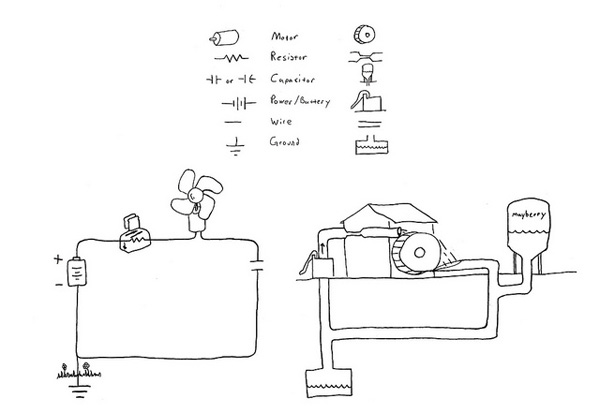 Motor
Resistor
or
Capacitor
Power/Battery
Wire
Ground
+
-
mayberry